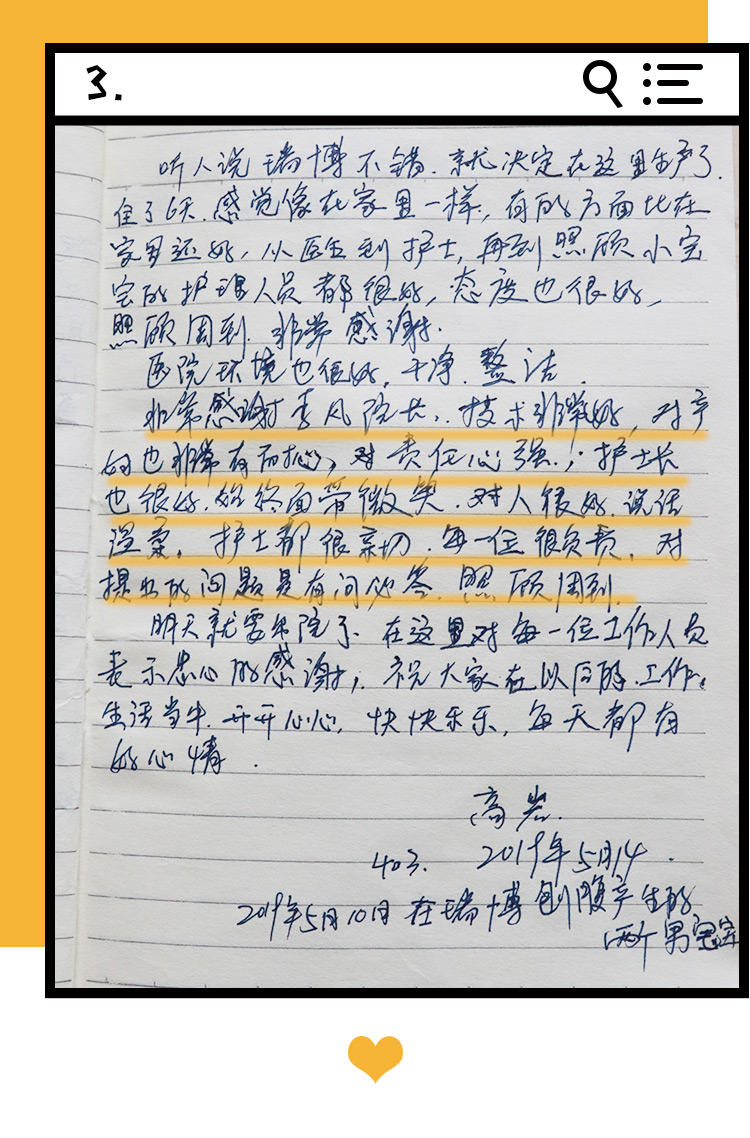 3.
听人说瑞博不错.就决定在这里生产了.
住了6天.感觉像在家里一样,有的方面比在
家里还好,从医生到护士,再到照顾小宝
宝的护理人员都很好,态度也很好,
照顾周到.非常感谢.
医院环境也很好,干净.整洁.
非常感谢李凤院长,.技术非常好,对产
妇也非常有耐心,对责任心强.,护士长
也很好.始终面带微笑.对人很好.说话
温柔.护士都很亲切.每一位很负责.对
提出的问题是有问必答.照顾周到.
明天就要出院了、在这里对每一位工作人员
表示忠心的感谢,.祝大家在以后的.工作.
生活当中.开开心心,快快乐乐,每天都有
好心情.
高岩.
403. 2019年5月14.
2019年5月10日在瑞博刨腹产生的
两个男宝宝